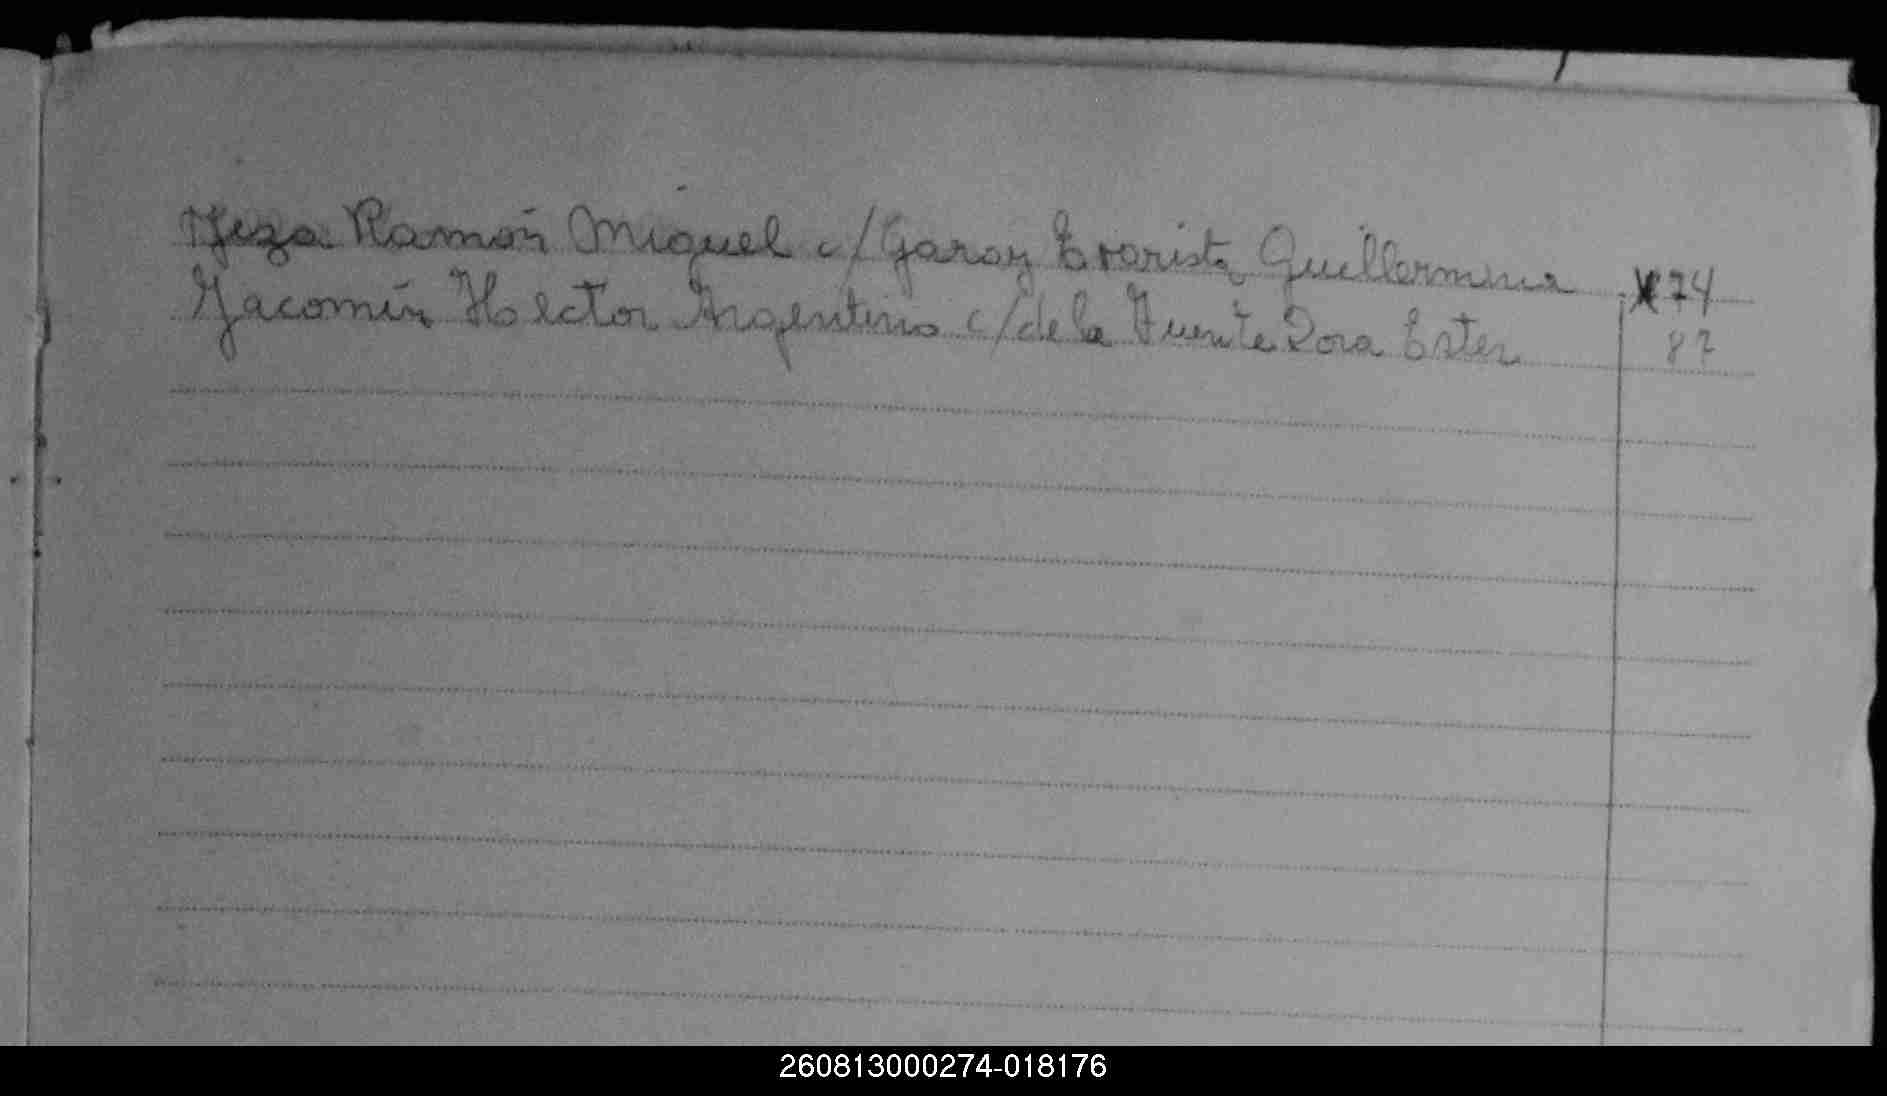 Yeza Ramón Miguel c/ Garay Evarista Guillermina 74
Yacomin Hector Argentino c/ de la Fuente Dora Ester 87
260813000274-018176